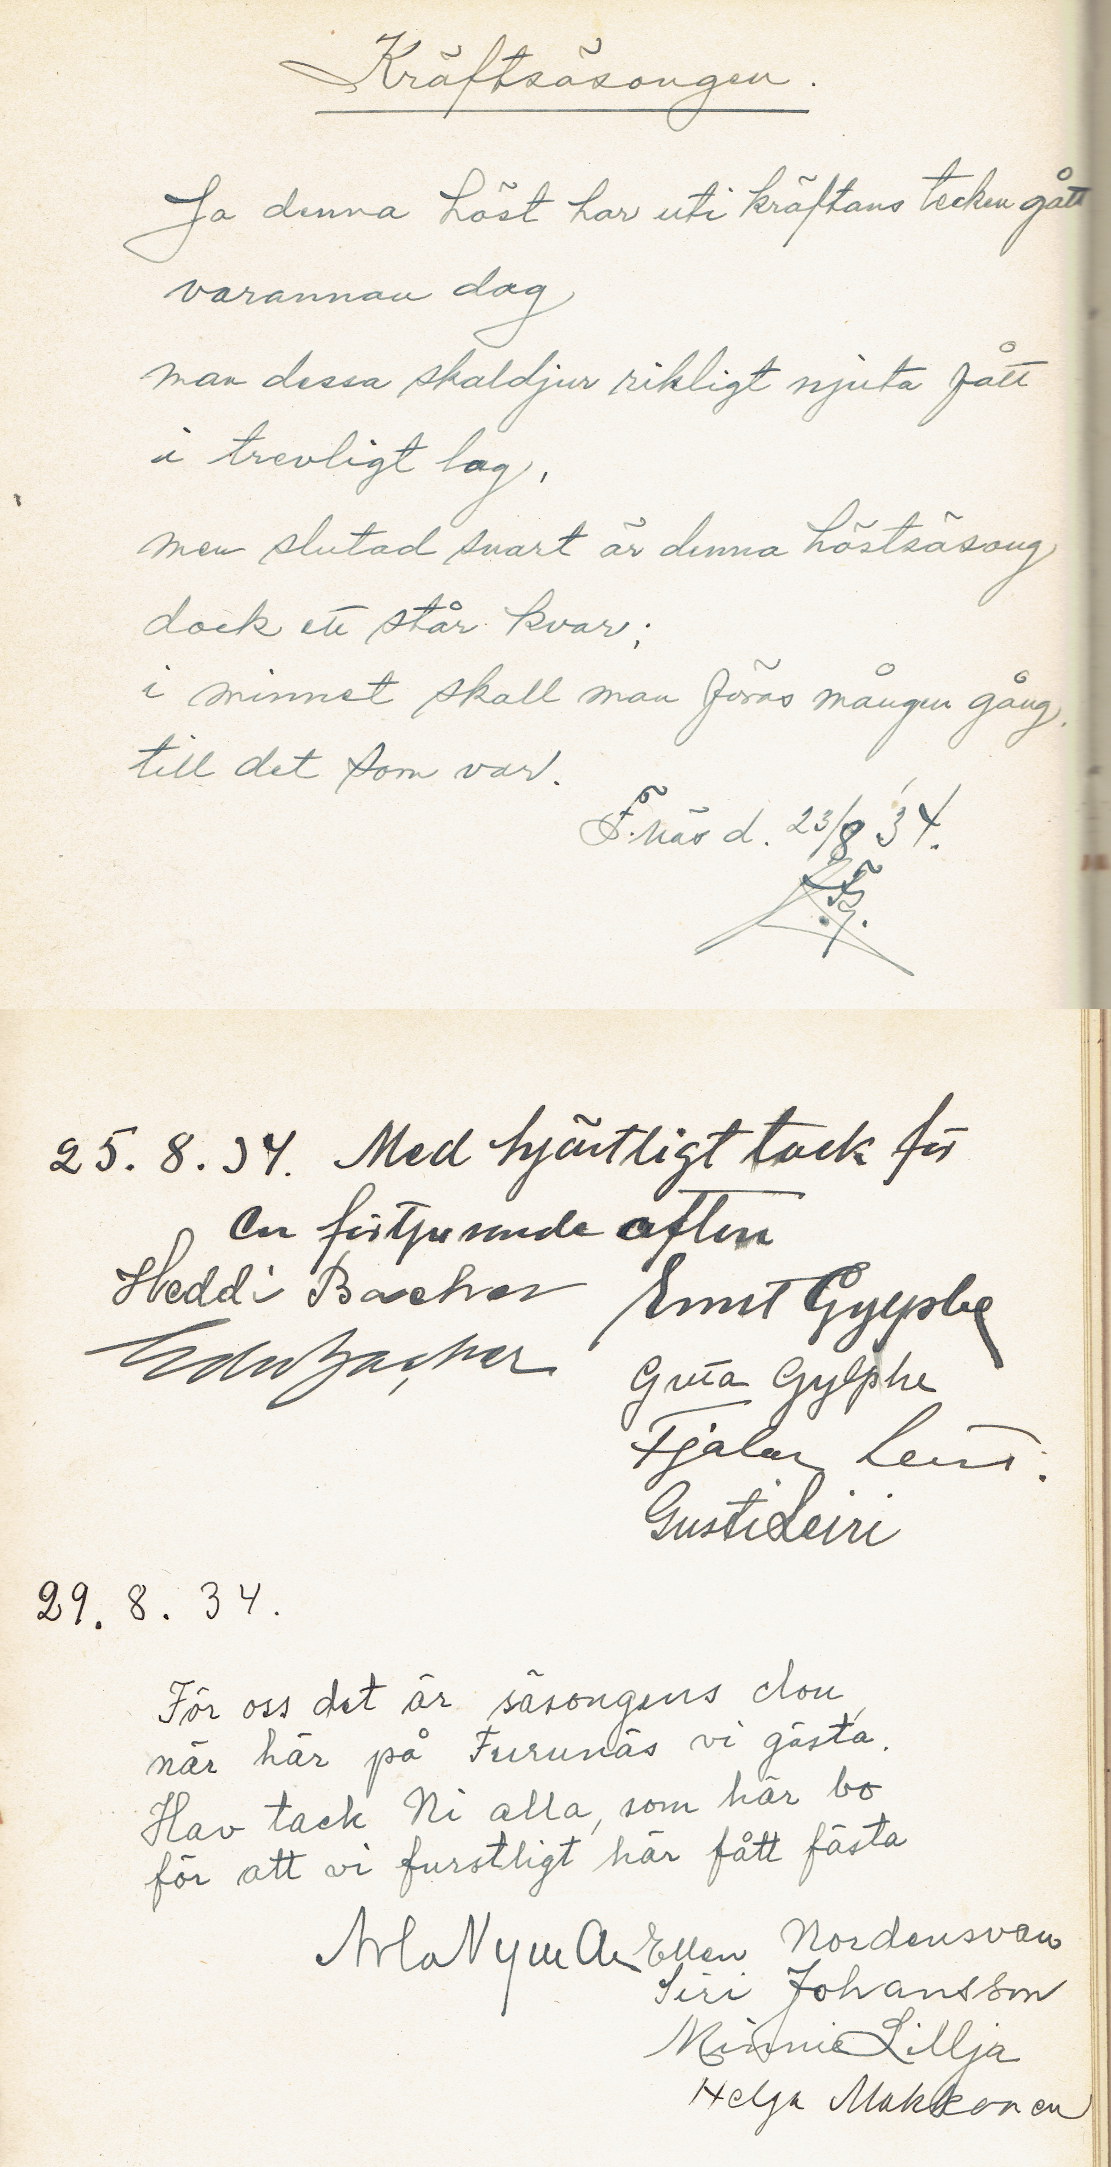 Kräftsäsongen.
Ja denna höst har uti kräftans tecken gått
varannan dag
man dessa skaldjur rikligt njuta fått
i trevligt lag,
men slutad snart är denna höstsäsong
dock ett står kvar;
i minnet skall man föras mången gång
till det som var.
F.näs d. 23/8 34.
25.8.34. Med hjärtligt tack för
en förtjusande afton
Heddi Bacher Ernst Gylphe
Bacher
Greta Gylphe
Fjalar
Gusti Leiri
29.8.34.
För oss det är säsongens clou
när här på Furunäs vi gästa.
Hav tack Ni alla, som här bo
för att vi furstligt här fått fästa
Ellen Nordensvan
Siri Johansson
Minnie Lillja
Helga Makkonen